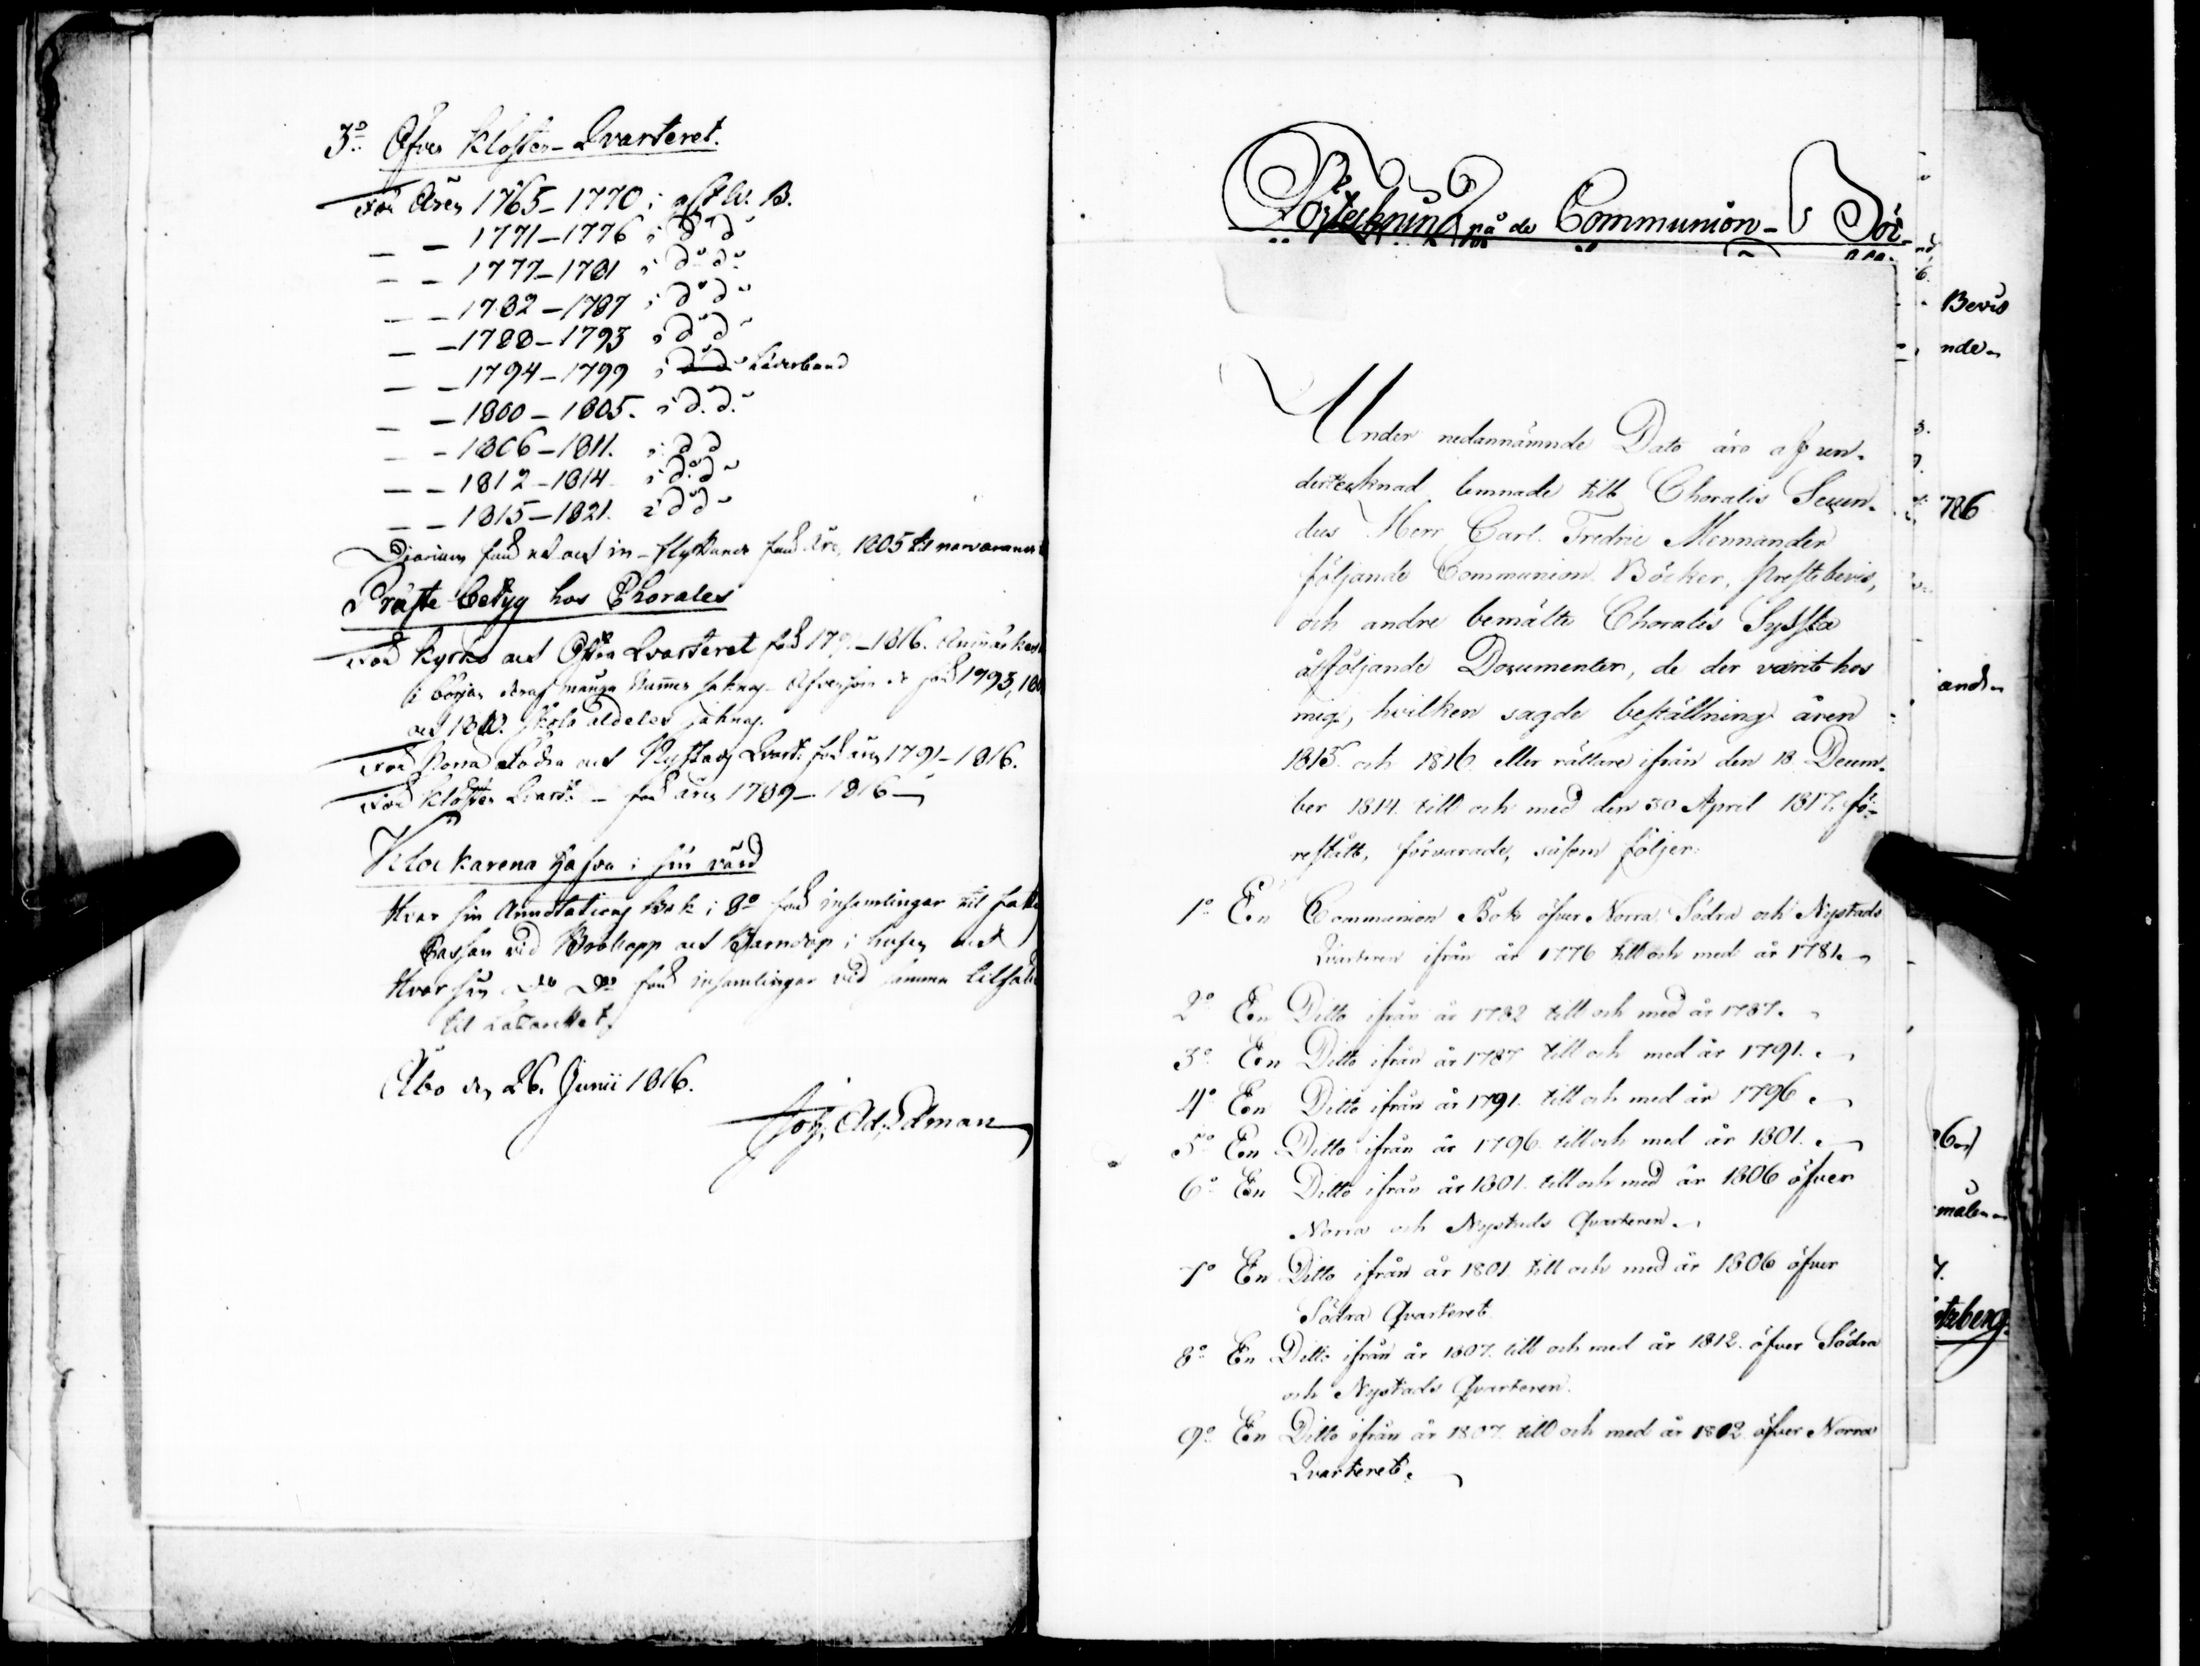 3:o Öfver Kloster-Qvarteret.
För Åren 1765-1770 i
— — 1771-1776 i d:o d:o
— — 1777-1781 i d:o d:o
— — 1782-1787 i d:o d:o
— — 1788-1793 i d:o d:o
— — 1794-1799 i d:o d:o Läderband
— — 1800-1805. i d:o d:o
— — 1806-1811. i d:o d:o
— — 1812-1814 i d:o d:o
— — 1815-1821. i d:o d:o
Diarium in-flyttande 1805 til
Präste betyg hos Chorales
För Kyrko och Qvarteret 1816.
i början deraf många saknas 1793,
och aldeles saknas.
För Norra Södra och Nystads Qvart: för åren 1791-1816.
För Kloster Qvart: - för åren 1789-1816
Klockarena hafva i sin vård
Hvar sin Annotations Bok i 8:o för insamlingar til
Cassan vid Brölopp och Barndop i husen och
Hvar sin D:o D:o för insamlingar vid samma
til Lazarettet
Åbo den 26. Junii 1816.
Joh. Ad. Edman
Förteckning på de Communion- Böc-
Under nedannämnde Dato äro af un-
dertecknad lemnade till Choralis Secun-
dus Herr Carl Fredric Mennander
följande Communion Böcker, Prestebevis,
och andre bemälte Choralis Syssla
åtföljande Documenter, de der varit hos
mig, hvilken sagde beställning åren
1815 och 1816 eller rättare ifrån den 18 Decem-
ber 1814 till och med den 30 April 1817. fö-
restått, förvarade, såsom följer:
1:o En Communion Bok öfver Norra Södra och Nystads
Qvarteren ifrån år 1776 till och med år 1781.
2:o En Ditto ifrån år 1782 till och med år 1787.
3:o En Ditto ifrån år 1787 till och med år 1791.
4:o En Ditto ifrån år 1791. till och med år 1796.
5:o En Ditto ifrån år 1796 till och med år 1801.
6:o En Ditto ifrån år 1801. till och med år 1806 öfver
Norra och Nystads Qvarteren.
7:o En Ditto ifrån år 1801 till och med år 1806 öfver
Södra Qvarteret
8:o En Ditto ifrån år 1807. till och med år 1812. öfver Södra
och Nystads Qvarteren.
9:o En Ditto ifrån år 1807. till och med år 1812 öfver Norra
Qvarteret.
Bevis
nde
786
ande
målen